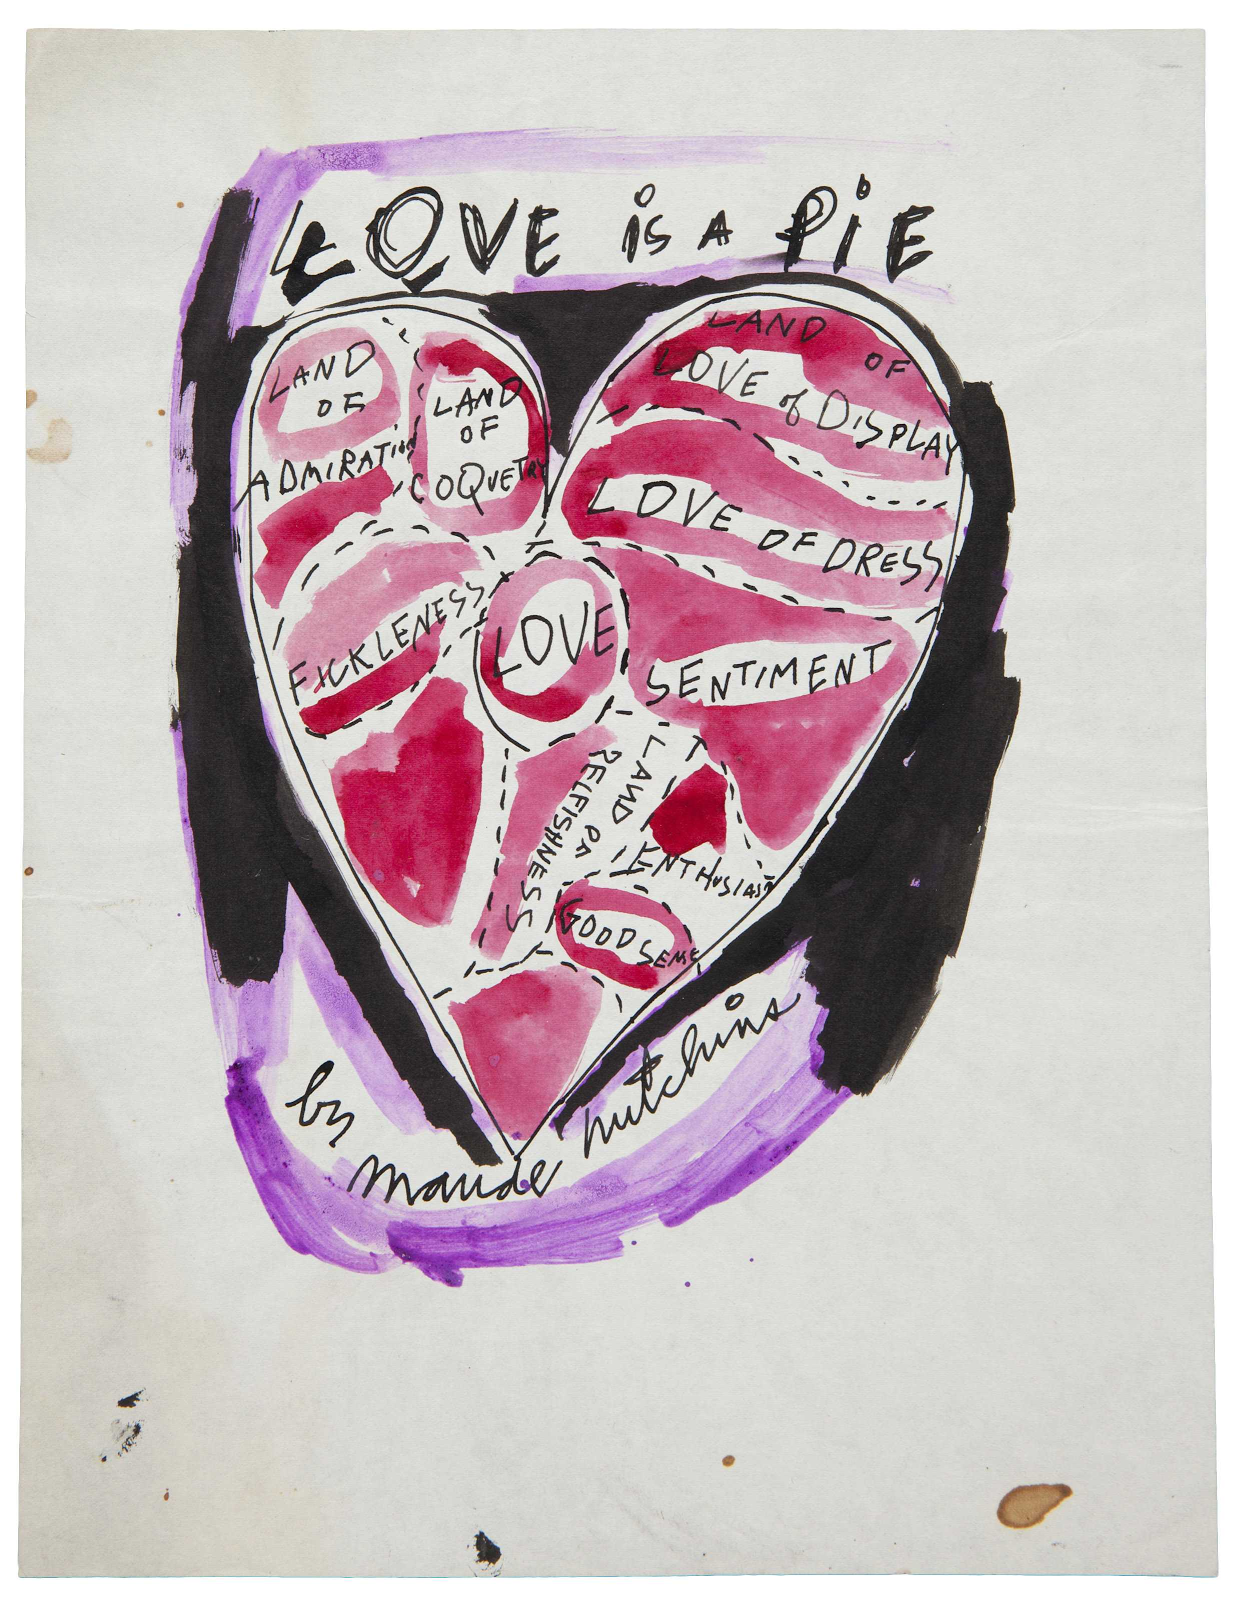 LOVE is A PiE
LAND
OF
ADMIRATiON
LAND
OF
COQUETRY
LAND OF
LOVE of DiSPLAY
LOVE OF DRESS
FICKLENESS
LOVE
SENTIMENT
LAND OF
SELFISHNESS
ENTHUSIASM
GOOD SENSE
by
maude
hutchins